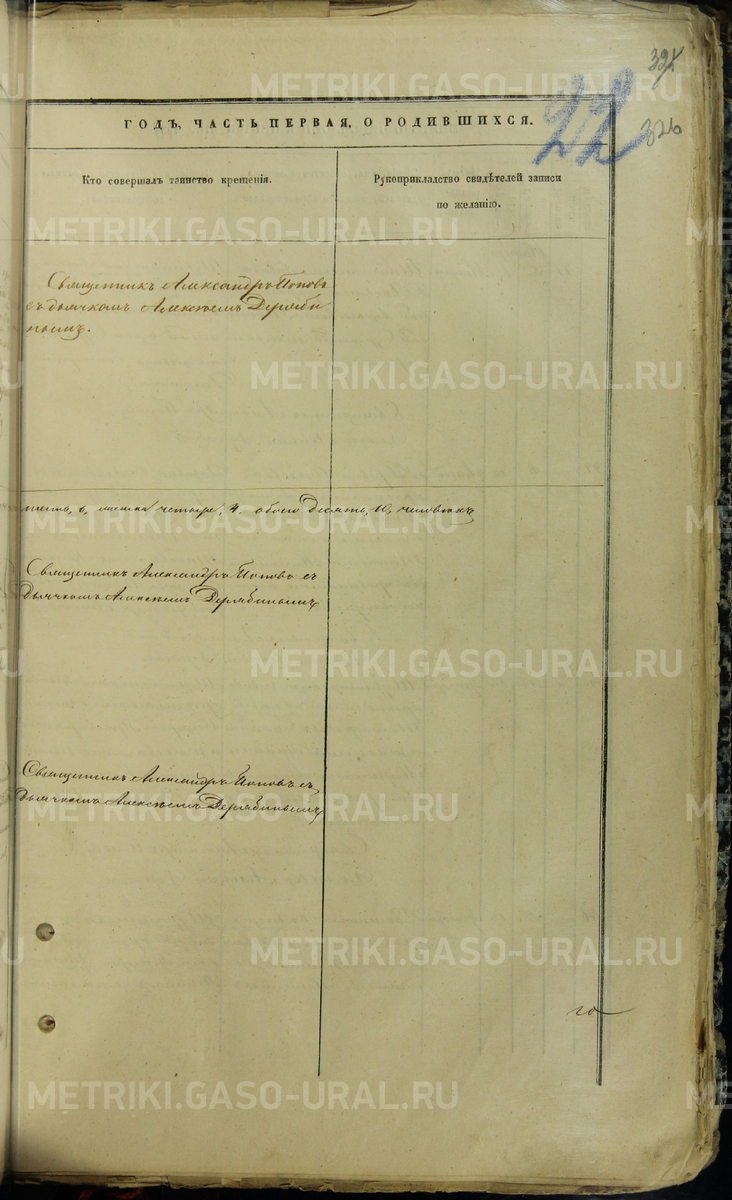 321
326
22
ГОДЪ, ЧАСТЬ ПЕРВАЯ, О РОДИВШИХСЯ.
Кто совершалъ таинство крещенія.
Рукоприкладство свидѣтелей записи
по желанію.
Священникъ Александръ Поповъ
съ дьячкомъ Алексѣемъ Деряби
нымъ.
6, женска четыре, 4. обоего десять, 10, человѣкъ
Священникъ Александръ Поповъ съ
дьячкомъ Алексѣемъ Дерябинымъ
Священникъ Александръ Поповъ съ
дьячкомъ Алексѣемъ Дерябинымъ
го
METRIKI.GASO-URAL.RU
METRIKI.GASO-URAL.RU
METRIKI.GASO-URAL.RU
METRIKI.GASO-URAL.RU
METRIKI.GASO-URAL.RU
METRIKI.GASO-URAL.RU
METRIKI.GASO-URAL.RU
METRIKI.GASO-URAL.RU